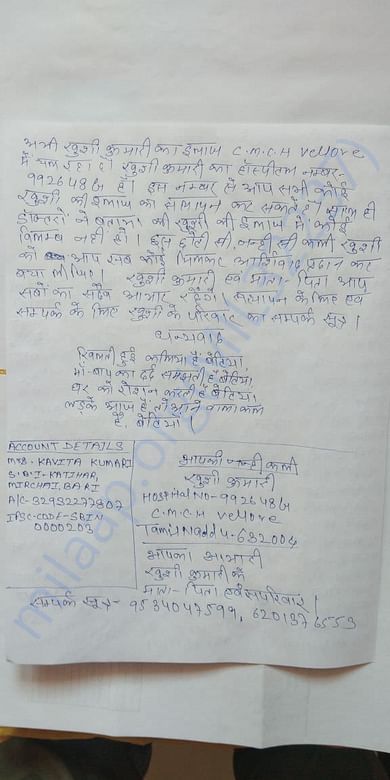 अभी खुशी कुमारी का ईलाज C.M.C.H Vellore
में चल रहा है। खुशी कुमारी का हॉस्पीटल नम्बर-
992648G है। इस नम्बर से आप सभी कोई
खुशी की ईलाज का सत्यापन कर सकते हैं।
डॉक्टरों ने बताया की खुशी की ईलाज में कोई
विलम्ब नहीं हो। इस छोटी सी नन्ही सी कली खुशी
को आप सब कोई मिलकर आर्शिवाद प्रदान कर
बचा लीजिए। खुशी कुमारी एवं माता-पिता आप
सबों का सदैव आभार रहेंगे। सत्यापन के लिए एवं
सम्पर्क के लिए खुशी के परिवार का सम्पर्क सूत्र।
धन्यवाद
खिलती हुई कलिया हैं बेटिया,
माँ-बाप का दर्द समझती हैं बेटिया,
घर को रोशन करती हैं बेटिया,
लड़के आज हैं तो आने वाला कल
हैं बेटिया।
ACCOUNT DETAILS
MRS. KAVITA KUMARI
S.B.I-KATIHAR,
MIRCHAIBARI
A/C-32952277807
IFSC-CODE-SBIN
0000203
आपकी नन्ही कली
खुशी कुमारी
Hospital NO-992648G
C.M.C.H Vellore
Tamil Nadu-632004
आपका आभारी
खुशी कुमारी के
माता-पिता एवं सपरिवार।
सम्पर्क सूत्र- 9534047599, 6201376553
milaap.org